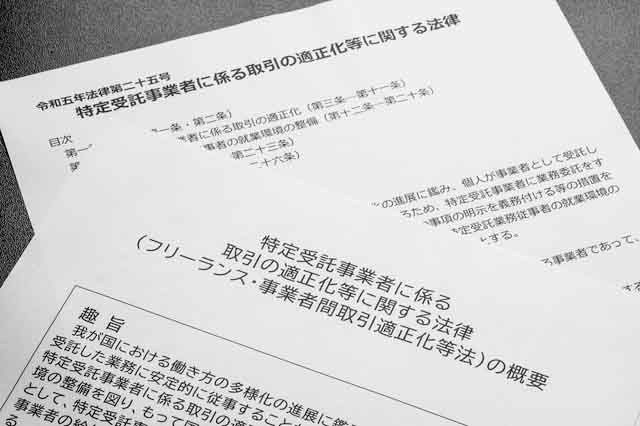 令和五年法律第二十五号
特定受託事業者に係る取引の適正化等に関する法律
目次
一条・第二条）
業者に係る取引の適正化（第三条―第十一条）
事者の就業環境の整備（第十二条―第二十条）
第二十三条）
二十六条）
の進展に鑑み、個人が事業者として受託し
るため、特定受託事業者に業務委託をす
事項の明示を義務付ける等の措置を
定受託業務従事者の就業環境の
とする。
る事業者であって、
特定受託事業者に係る
取引の適正化等に関する法律
（フリーランス・事業者間取引適正化等法）の概要
趣旨
我が国における働き方の多様化の進展に鑑
受託した業務に安定的に従事すること
特定受託事業者に係る取引の適
境の整備を図り、もって国
として、特定受託事
事業者の給